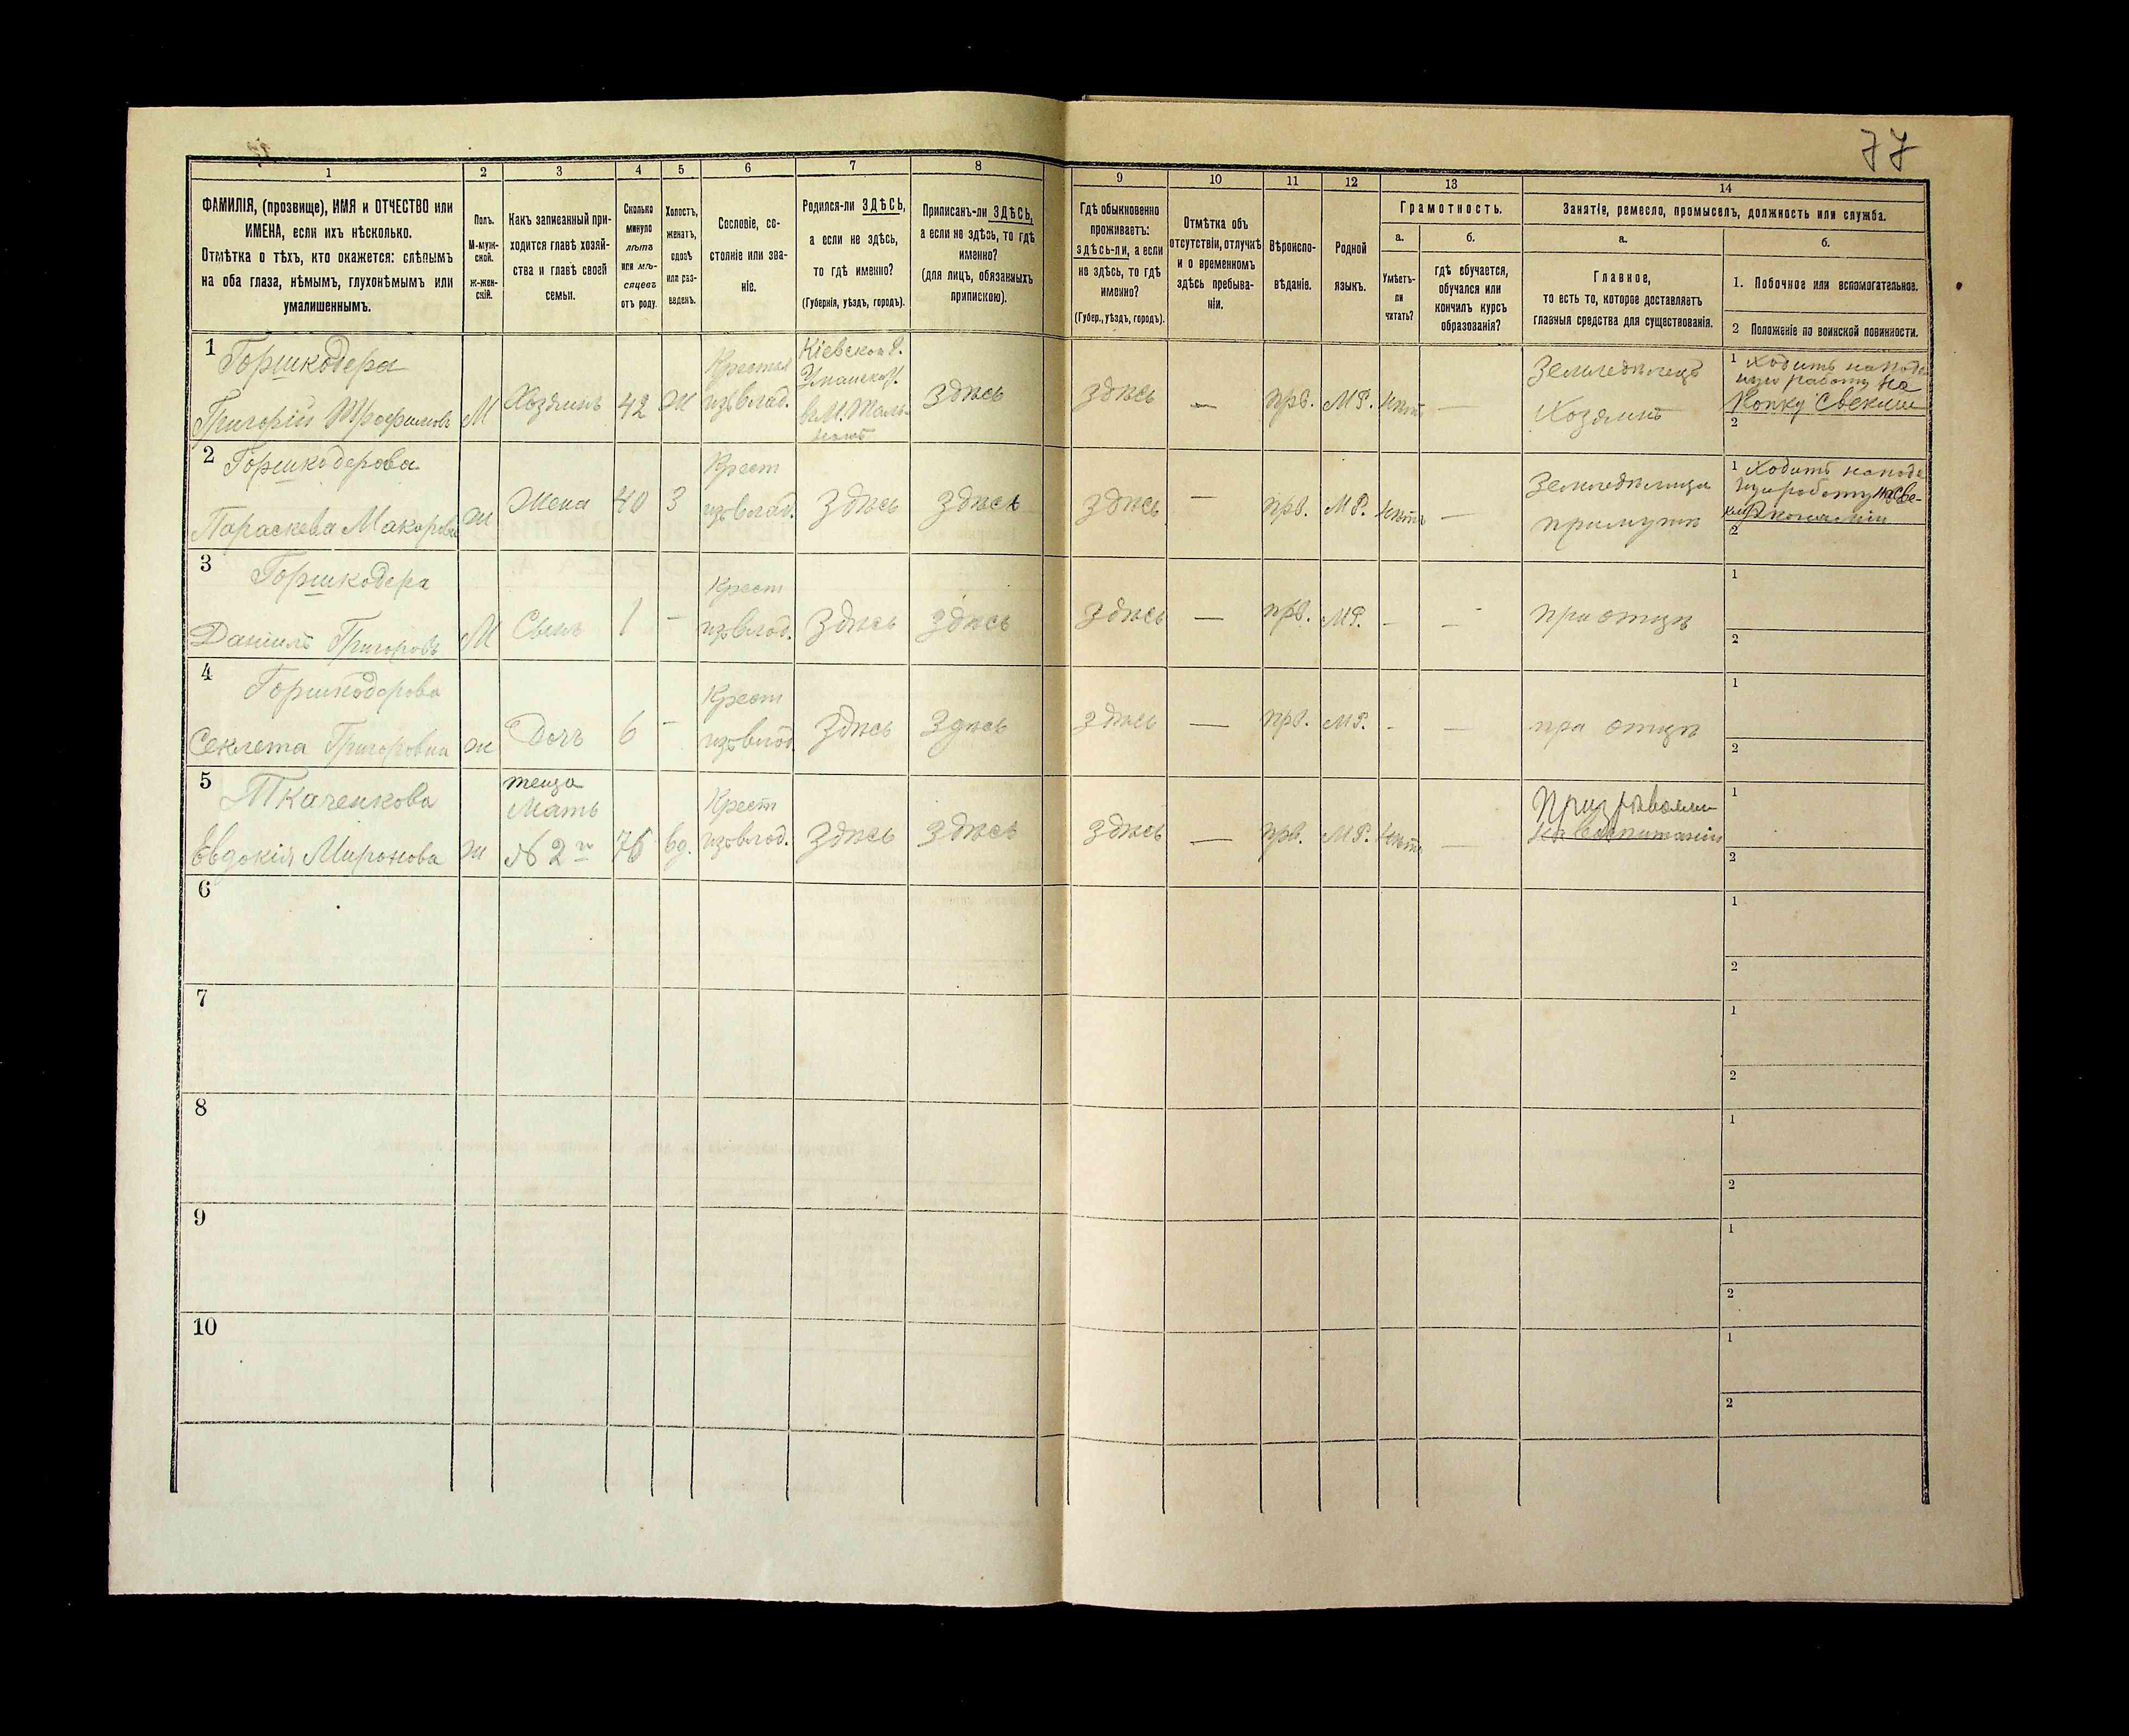 77
1 2 3 4 5 6 7 8 9 10 11 12 13 14
ФАМИЛІЯ, (прозвище), ИМЯ и ОТЧЕСТВО или
ИМЕНА, если ихъ нѣсколько.
Отмѣтка о тѣхъ, кто окажется: слѣпымъ
на оба глаза, нѣмымъ, глухонѣмымъ или
умалишеннымъ.
Полъ.
М-муж-
ской.
ж-жен-
скій.
Какъ записанный при-
ходится главѣ хозяй-
ства и главѣ своей
семьи.
Сколько
минуло
лѣтъ
или мѣ-
сяцевъ
отъ роду.
Холостъ,
женатъ,
вдовъ
или раз-
веденъ.
Сословіе, со-
стояніе или зва-
ніе.
Родился-ли ЗДѢСЬ,
а если не здѣсь,
то гдѣ именно?
(Губернія, уѣздъ, городъ).
Приписанъ-ли ЗДѢСЬ,
а если не здѣсь, то гдѣ
именно?
(для лицъ, обязанныхъ
припискою).
Гдѣ обыкновенно
проживаетъ:
здѣсь-ли, а если
не здѣсь, то гдѣ
именно?
(Губер., уѣздъ, городъ).
Отмѣтка объ
отсутствіи, отлучкѣ
и о временномъ
здѣсь пребыва-
ніи.
Вѣроиспо-
вѣданіе.
Родной
языкъ.
Грамотность.
а.
Умѣетъ-
ли
читать?
б.
гдѣ обучается,
обучался или
кончилъ курсъ
образованія?
Занятіе, ремесло, промыселъ, должность или служба.
а.
Главное,
то есть то, которое доставляетъ
главныя средства для существованія.
б.
1. Побочное или вспомогательное.
2 Положеніе по воинской повинности.
1 Горшкодера
Григорій Трофимовъ
М
Хозяинъ
42
Ж
Крестья
изъ влад.
Кіевской Г.
Уманск. У.
в М. Таль-
номъ
здѣсь
здѣсь
—
прв.
МР.
нѣтъ
—
Земледѣлецъ
Хозяинъ
1 Ходитъ на поде
работу на
Копку Свеклы
2
2 Горшкодерова
Параскева Макарова
ж
Жена
40
З
Крест
изъ влад.
Здѣсь
Здѣсь
здѣсь
—
прв.
МР.
нѣтъ
—
Земледѣлица
при мужѣ
1 Ходитъ на поде
2
3 Горшкодера
Даніилъ Григоровъ
М
Сынъ
1
—
Крест
изъ влад.
Здѣсь
здѣсь
здѣсь
—
прв.
МР.
-
-
при отцѣ
1
2
4 Горшкодерова
Секлета Григоровна
ж
Дочъ
6
—
Крест
изъ влад.
Здѣсь
Здѣсь
здѣсь
—
прв.
МР.
-
—
при отцѣ
1
2
5 Ткаченкова
Евдокія Миронова
ж
теща
Мать
№ 2й
76
вд.
Крест
изъ влад.
Здѣсь
Здѣсь
здѣсь
—
прв.
МР.
нѣтъ
—
на воспитаніи
1
2
6
1
2
7
1
2
8
1
2
9
1
2
10
1
2